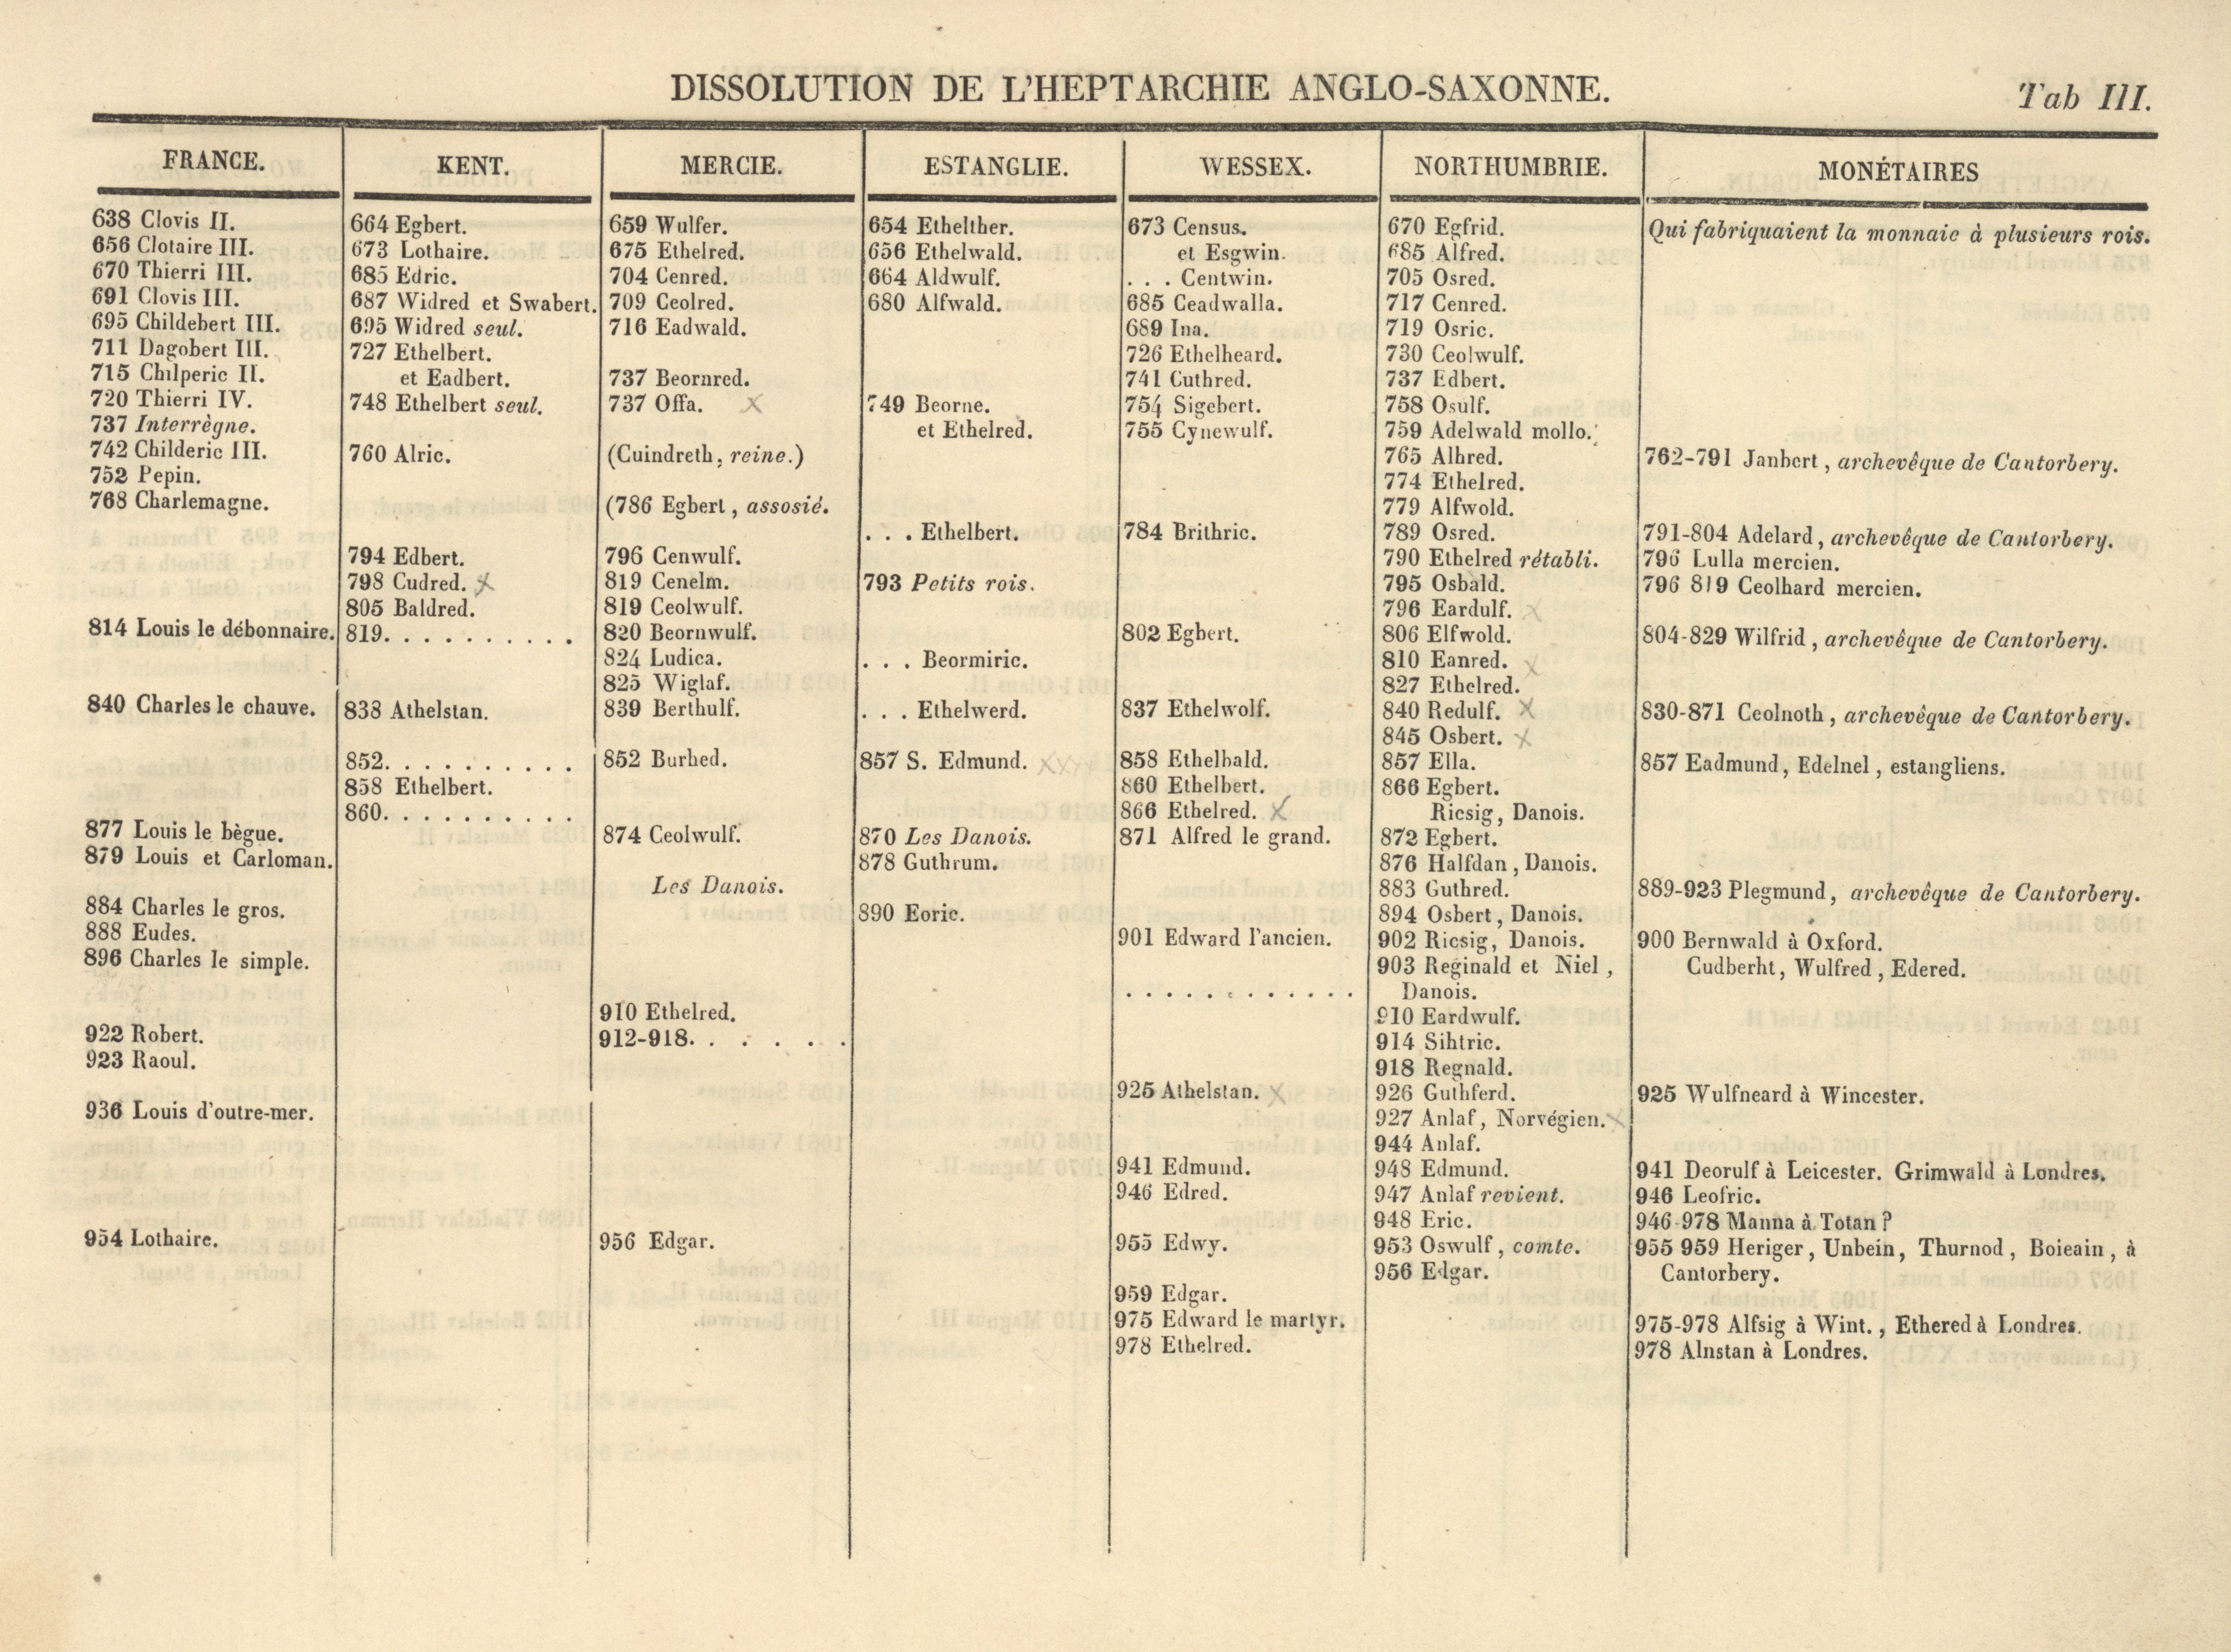 DISSOLUTION DE L'HEPTARCHIE ANGLO-SAXONNE.
Tab III.
FRANCE.
638 Clovis II.
656 Clotaire III.
670 Thierri III.
691 Clovis III.
695 Childebert III.
711 Dagobert III.
715 Chilperic II.
720 Thierri IV.
737 Interrègne.
742 Childeric III.
752 Pepin.
768 Charlemagne.
814 Louis le débonnaire.
840 Charles le chauve.
877 Louis le bègue.
879 Louis et Carloman.
884 Charles le gros.
888 Eudes.
896 Charles le simple.
922 Robert.
923 Raoul.
936 Louis d'outre-mer.
954 Lothaire.
KENT.
664 Egbert.
673 Lothaire.
685 Edric.
687 Widred et Swabert.
695 Widred seul.
727 Ethelbert.
et Eadbert.
748 Ethelbert seul.
760 Alric.
794 Edbert.
798 Cudred. x
805 Baldred.
819. . . . . . . . . .
838 Athelstan.
852. . . . . . . . . .
858 Ethelbert.
860. . . . . . . . . .
MERCIE.
659 Wulfer.
675 Ethelred.
704 Cenred.
709 Ceolred.
716 Eadwald.
737 Beornred.
737 Offa. x
(Cuindreth, reine.)
(786 Egbert, assosié.
796 Cenwulf.
819 Cenelm.
819 Ceolwulf.
820 Beornwulf.
824 Ludica.
825 Wiglaf.
839 Berthulf.
852 Burhed.
874 Ceolwulf.
Les Danois.
910 Ethelred.
912-918. . . . . .
956 Edgar.
ESTANGLIE.
654 Ethelther.
656 Ethelwald.
664 Aldwulf.
680 Alfwald.
749 Beorne.
et Ethelred.
. . . Ethelbert.
793 Petits rois.
. . . Beormiric.
. . . Ethelwerd.
857 S. Edmund. xxxx
870 Les Danois.
878 Guthrum.
890 Eoric.
WESSEX.
673 Census.
et Esgwin.
. . . Centwin.
685 Ceadwalla.
689 Ina.
726 Ethelheard.
741 Cuthred.
754 Sigebert.
755 Cynewulf.
784 Brithric.
802 Egbert.
837 Ethelwolf.
858 Ethelbald.
860 Ethelbert.
866 Ethelred. x
871 Alfred le grand.
901 Edward l'ancien.
. . . . . . . . . . . .
925 Athelstan. x
941 Edmund.
946 Edred.
955 Edwy.
959 Edgar.
975 Edward le martyr.
978 Ethelred.
NORTHUMBRIE.
670 Egfrid.
685 Alfred.
705 Osred.
717 Cenred.
719 Osric.
730 Ceolwulf.
737 Edbert.
758 Osulf.
759 Adelwald mollo.
765 Alhred.
774 Ethelred.
779 Alfwold.
789 Osred.
790 Ethelred rétabli.
795 Osbald.
796 Eardulf. x
806 Elfwold.
810 Eanred. x
827 Ethelred.
840 Redulf. x
845 Osbert. x
857 Ella.
866 Egbert.
Ricsig, Danois.
872 Egbert.
876 Halfdan, Danois.
883 Guthred.
894 Osbert, Danois.
902 Ricsig, Danois.
903 Reginald et Niel,
Danois.
910 Eardwulf.
914 Sihtric.
918 Regnald.
926 Guthferd.
927 Anlaf, Norvégien. x
944 Anlaf.
948 Edmund.
947 Anlaf revient.
948 Eric.
953 Oswulf, comte.
956 Edgar.
MONÉTAIRES
Qui fabriquaient la monnaie à plusieurs rois.
762-791 Janbert, archevêque de Cantorbery.
791-804 Adelard, archevêque de Cantorbery.
796 Lulla mercien.
796 819 Ceolhard mercien.
804-829 Wilfrid, archevêque de Cantorbery.
830-871 Ceolnoth, archevêque de Cantorbery.
857 Eadmund, Edelnel, estangliens.
889-923 Plegmund, archevêque de Cantorbery.
900 Bernwald à Oxford.
Cudberht, Wulfred, Edered.
925 Wulfneard à Wincester.
941 Deorulf à Leicester. Grimwald à Londres.
946 Leofric.
946-978 Manna à Totan?
955 959 Heriger, Unbein, Thurnod, Boieain, à
Cantorbery.
975-978 Alfsig à Wint., Ethered à Londres.
978 Alnstan à Londres.